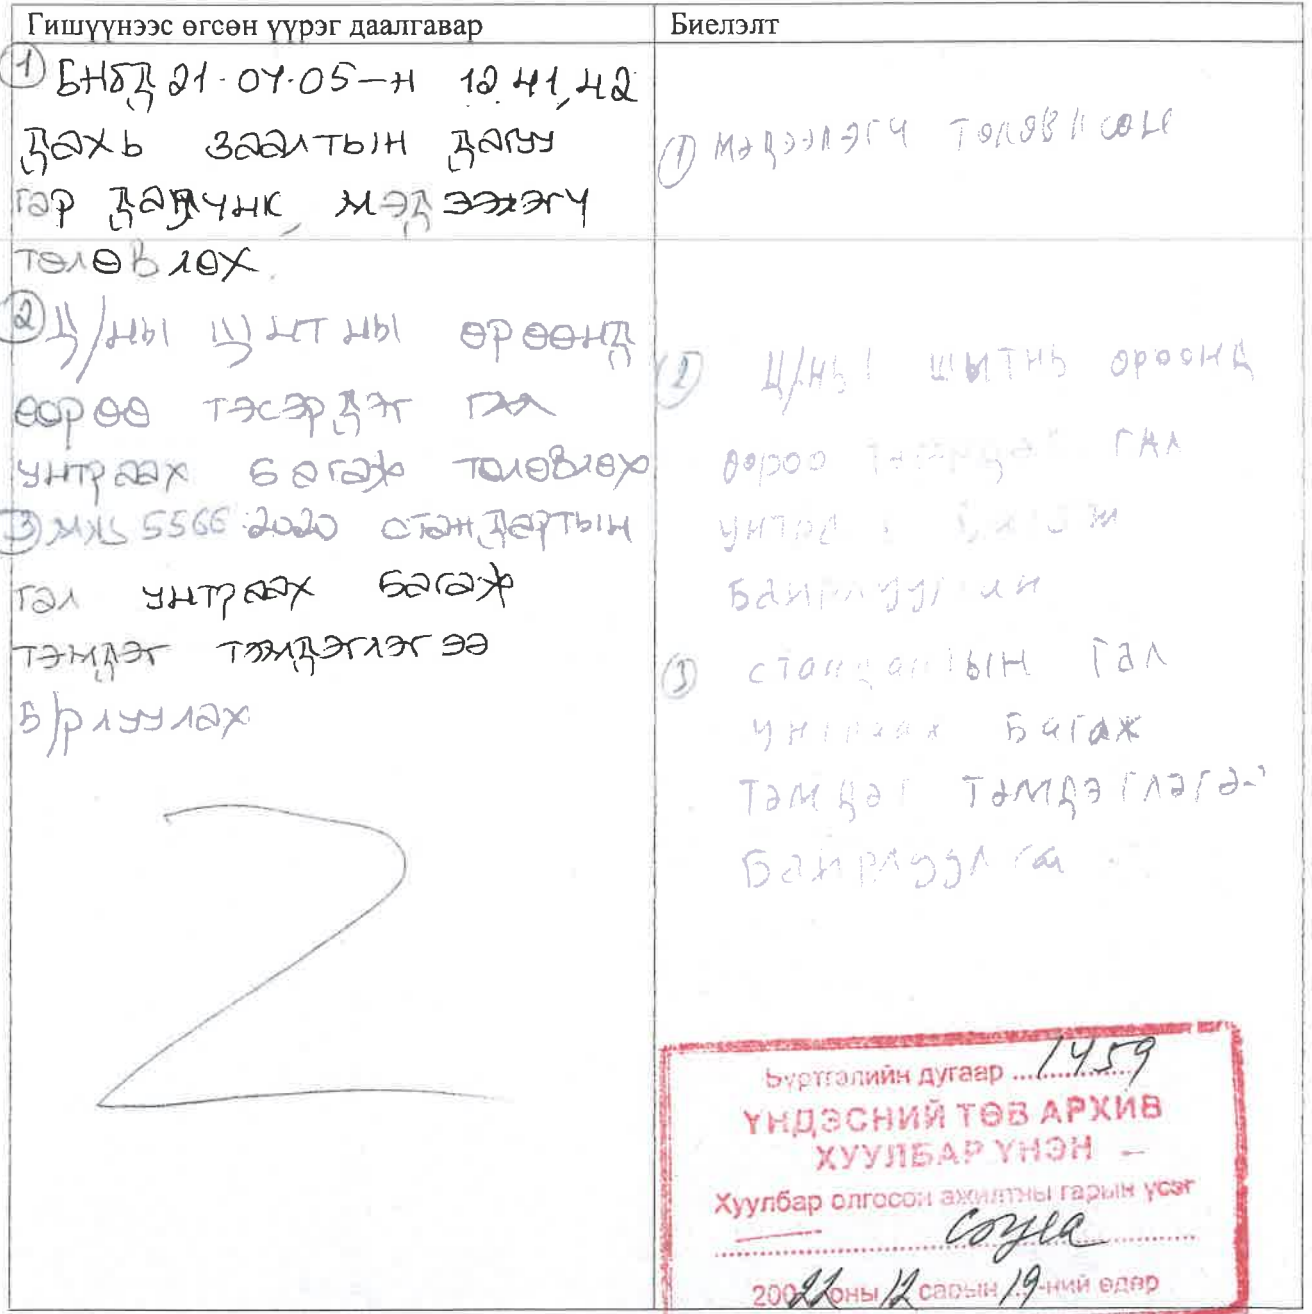 Гишүүнээс өгсөн үүрэг даалгавар
① БНбД 21-04-05-н 12.41,42
дахь заалтын дагуу
гар дамчик, мэдээлэгч
төлөвлөх.
② Ц/ны щитны өрөөнд
өөрөө тэсэрдэг гал
унтраах багаж төлөвлөх
③ MNS 5566:2020 стандартын
гал унтраах багаж
тэмдэг тэмдэглэгээ
Б/рлуулах
Биелэлт
① мэдээлэгч төлөвлсөн
② Ц/ны щитнь өрөөнд
өөрөө гал
байрлуулсан
③ стандартын гал
унтраах багаж
тэмдэг тэмдэглэгээ
Байрлуулсан
Бүртгэлийн дугаар 1459
ҮНДЭСНИЙ ТӨВ АРХИВ
ХУУЛБАР ҮНЭН
Хуулбар олгосон ажилтны гарын үсэг
2022 оны 12 сарын 19-ний өдөр